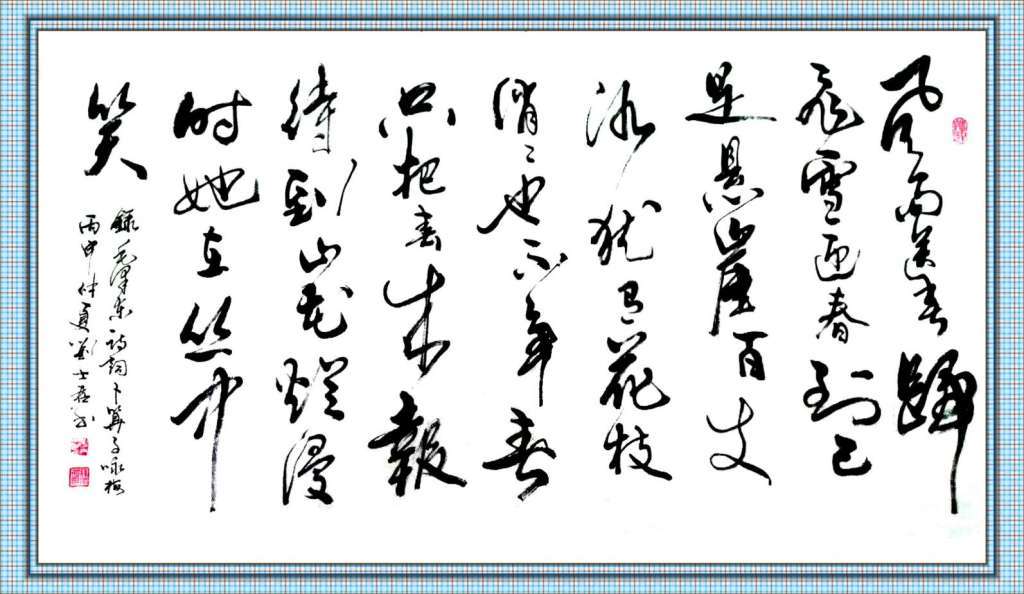 風雨送春歸
飛雪迎春到已
是悬崖百丈
冰犹有花枝
俏〻也不争春
只把春来報
待到山花烂漫
时她在丛中
笑
録毛泽东诗词卜算子咏梅
丙申仲夏